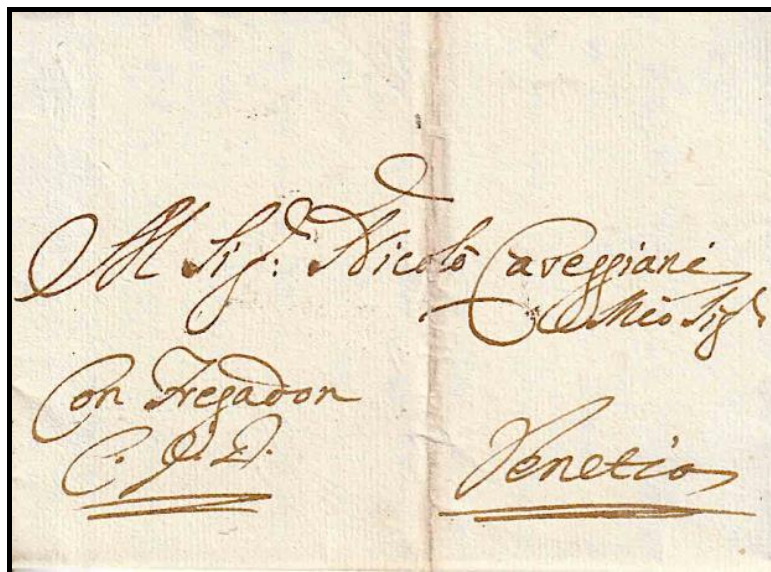 Al Sig.r Nicolò Caveggiani
Mio Sig.r
Con Fregadon
C. G. D.
Venetia